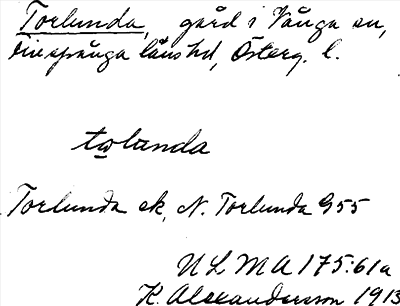 Torlunda, gård i Vånga sn,
Finspånga läns hd, Österg. l.
tωlunda
Torlunda ek, N. Torlunda G55
ULMA 175:61a
K. Alexandersson 1913